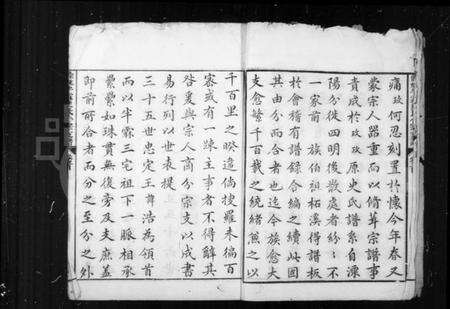 痛玫何忍刻置於懷今年春又
蒙宗人器重而以脩葺宗譜事
責成於玫玫原史氏譜系自溧
陽分徙四明後散處者紛紛不
一家前族伯祖柘溪得譜板
於會稽有譜錄合編之續此因
其由分而合者也迄今族愈大
支愈繁千百載之統緒蕪之以
千百里之暌違倘搜羅未徧百
密或有一疎主事者不得辭其
咎爰與宗人商分宗支以成書
易行列以世表提
三十五世忠定王諱浩為領首
而以半霸三宅祖下一脈相承
纍纍如珠貫無復旁及支庶蓋
即前所合者而分之至分之外